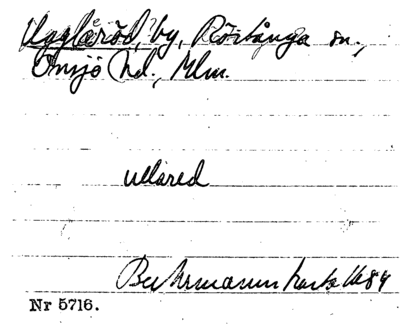 Ugglaröd, by, Röstånga sn.,
Onsjö hd., Mlm.
ullared
Buhrmanns karta 1684
Nr 5716.